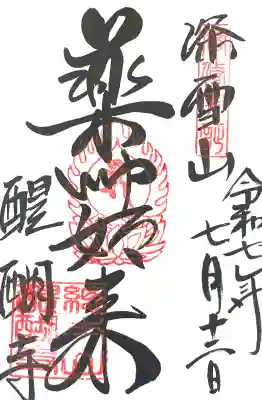 深雪山
令和七年
七月十二日
薬師如来
醍醐寺